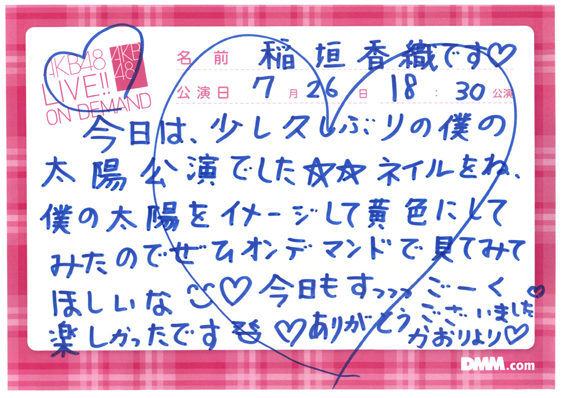 AKB48
LIVE!!
ON DEMAND
AKB
48
名前 稲垣香織です♡
公演日 7月26日 18:30公演
今日は、少し久しぶりの僕の
太陽公演でした☆☆ ネイルをね、
僕の太陽をイメージして黄色にして
みたのでぜひオンデマンドで見てみて
ほしいな ♡ 今日もすっっっごーく
楽しかったです ♡ありがとうございました♡
かおりより♡
DMM.com